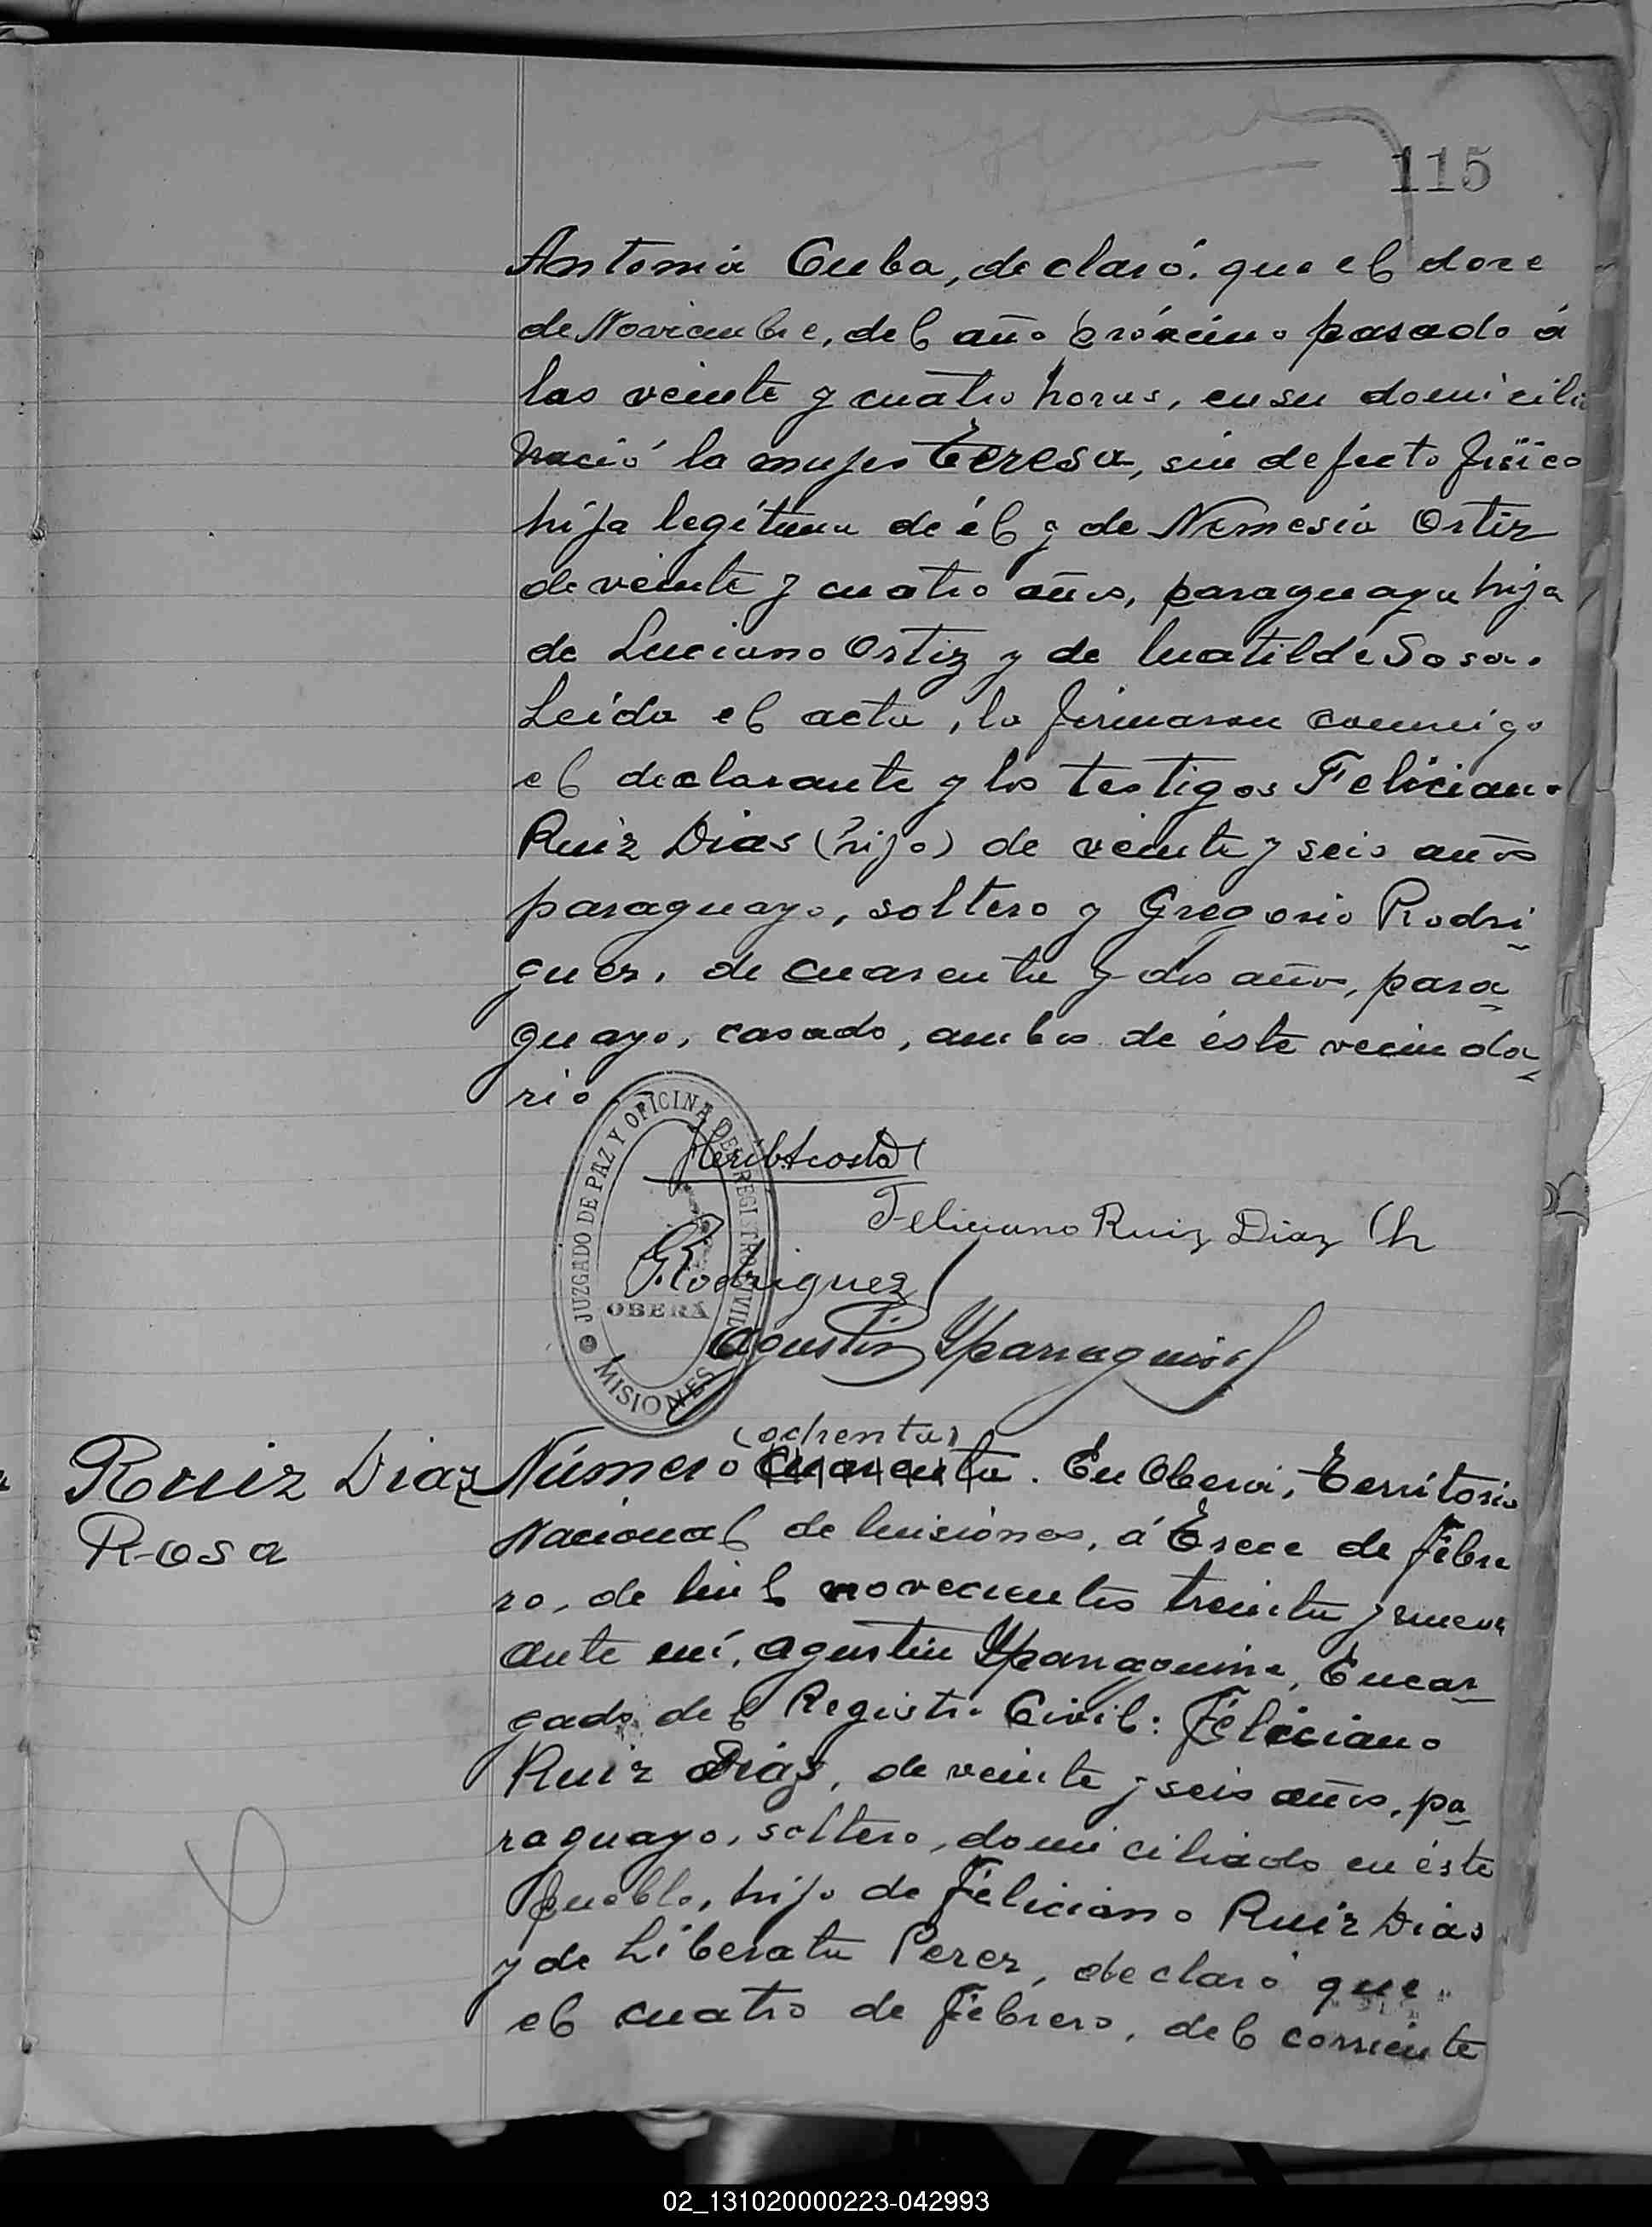 115
Antonia Cuba, declaró: que el doce
de Noviembre, del año próximo pasado á
las veinte y cuatro horas, en su domicilio
nació la mujer Teresa, sin defecto físico
hija legítima de él y de Nemesia Ortiz
de veinte y cuatro años, paraguaya hija
de Luciano Ortiz y de Matilde Sosa.
Leída el acta, la firmaron conmigo
el declarante y los testigos Feliciano
Ruiz Dias (hijo) de veinte y seis años
paraguayo, soltero y Gregorio Rodri
guez, de cuarenta y dos años, para
guayo, casado, ambos de éste vecinda
rio
JUZGADO DE PAZ Y OFICINA DEL REGISTRO CIVIL
OBERÁ
MISIONES
Herib Acosta
Feliciano Ruiz Diaz (h
G. Rodriguez
Agustin Yparraguirre
Ruiz Diaz
Rosa
(ochenta)
Número cuarenta. En Oberá, Territorio
Nacional de Misiones, á Trece de Febre
ro, de mil novecientos treinta y nueve
ante mí, Agustin Yparraguirre, Encar
gado del Registro Civil: Feliciano
Ruiz Diaz, de veinte y seis años, pa
raguayo, soltero, domiciliado en éste
pueblo, hijo de Feliciano Ruiz Dias
y de Liberata Perez, declaró que
el cuatro de Febrero, del corriente
02_131020000223-042993